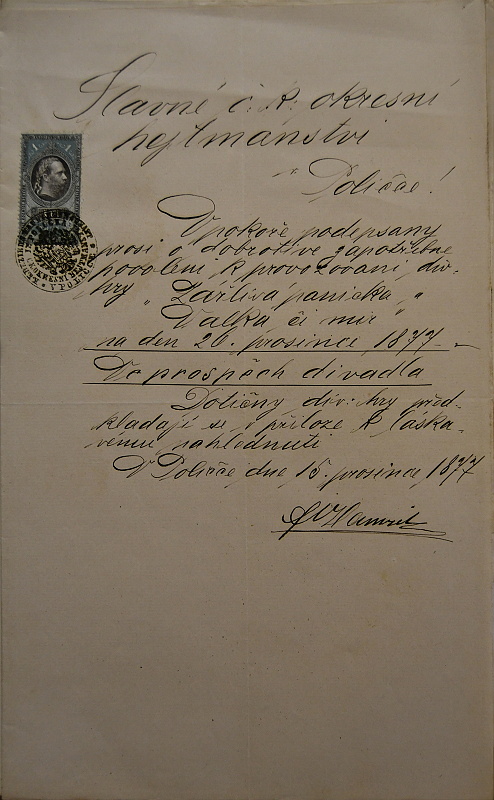 Slavné c: k: okresní
hejtmánství
v Poličce!
V pokoře podepsaný
prosí o dobrotivé zapotřebné
povolení k provozování div:
hry „Žárlivá panička„
„Válka či mír"
na den 26. prosince 1877 -
Ve prospěch divadla
Dotičny div: hry před-
kládají se v příloze k láska-
vému nahlédnutí
V Poličce dne 15. prosince 1877